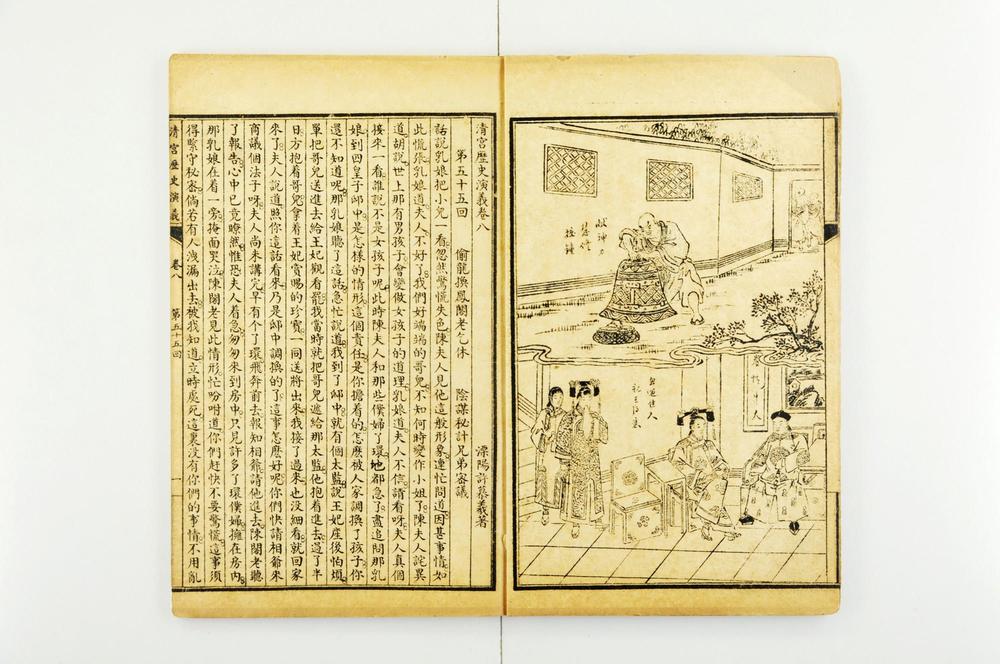 清宮歷史演義卷八
溧陽許慕羲著
第五十五回 偷龍換鳳閣老乞休 陰謀秘計兄弟密議
話說乳娘把小兒一看。忽然驚慌失色。陳夫人見他這般形象。連忙問道。因甚事情。如
此慌張。乳娘道。夫人不好了。我們好端端的哥兒。不知何時變作小姐了。陳夫人詫異
道。胡說。世上那有男孩子會變做女孩子的道理。乳娘道。夫人不信。請看呀。夫人真個
接來一看。誰說不是女孩子呢。此時陳夫人和那些僕婦了環。都急了。盡追問那乳
娘。到四皇子邸中。是怎樣的情形。這個責任是你擔着的。怎麼被人家調換了孩子。你
還不知道呢。那乳娘聽了這話。急忙說道。我到了邸中。就有個太監。說王妃產後怕煩。
單把哥兒送進去給王妃觀看罷。我當時就把哥兒遞給那太監。他抱着進去。過了半
日。方抱着哥兒。拿着王妃賞賜的珍寶。一同送將出來。我接了過來。也沒細看。就回家
來了。夫人說道。照你這話看來。乃是邸中調換的了。這事怎麼好呢。你們快請相爺來
商議個法子呀。夫人尚未講完。早有個了環飛奔前去報知相爺。請他進去。陳閣老聽
了報告。心中已竟瞭然。惟恐夫人着急。匆匆來到房中。只見許多了環僕婦。擁在房內。
那乳娘在着一旁。掩面哭泣。陳閣老見此情形。忙吩咐道。你們趕快不要驚慌。這事須
得緊守秘密。倘若有人洩漏出去。被我知道。立時處死。這裏沒有你們的事情。不用亂
清宮歷史演義 卷八 第五十五回 一